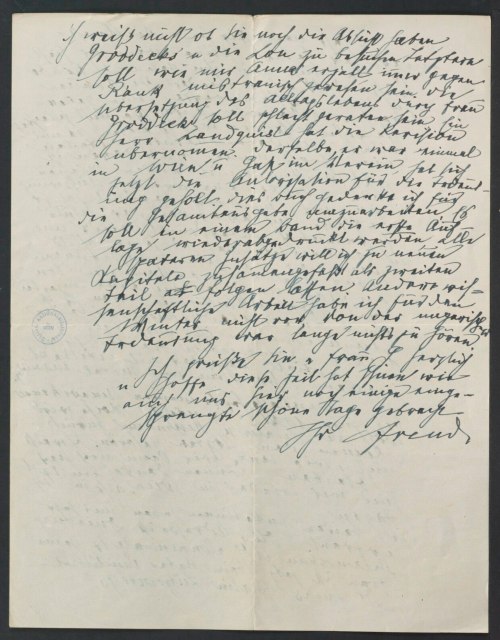 ich weiß nicht ob Sie noch die Absicht haben
Groddecks u die Lou zu besuchen. Letztere
soll wie mir Anna erzält immer gegen
Rank mißtrauisch gewesen sein. Die
Übersetzung des Alltagslebens durch Frau
Groddeck soll schlecht geraten sein. Ein
Herr Landquist hat die Revision
übernommen. derselbe, er war einmal
in Wien u Gast im Verein hat sich
jetzt die Autorisation für die Traumdeu-
tung geholt. Dies Buch gedenke ich für
die Gesamtausgabe umzuarbeiten. Es
soll in einem Band die erste Auf-
lage wiederabgedruckt werden. Alle
späteren Zusätze will ich zu neuen
Kapiteln zusamengefaßt als zweiten
Teil folgen lassen. Andere wis-
senschaftliche Arbeit habe ich für den
Winter nicht vor. Von der ungarischen
war lange nichts zu hören.
Ich grüße Sie u Frau G. herzlich
u hoffe diese Zeit hat Ihnen wie
auch uns hier noch einige einge-
sprengte schöne Tage gebracht
Ihr Freud